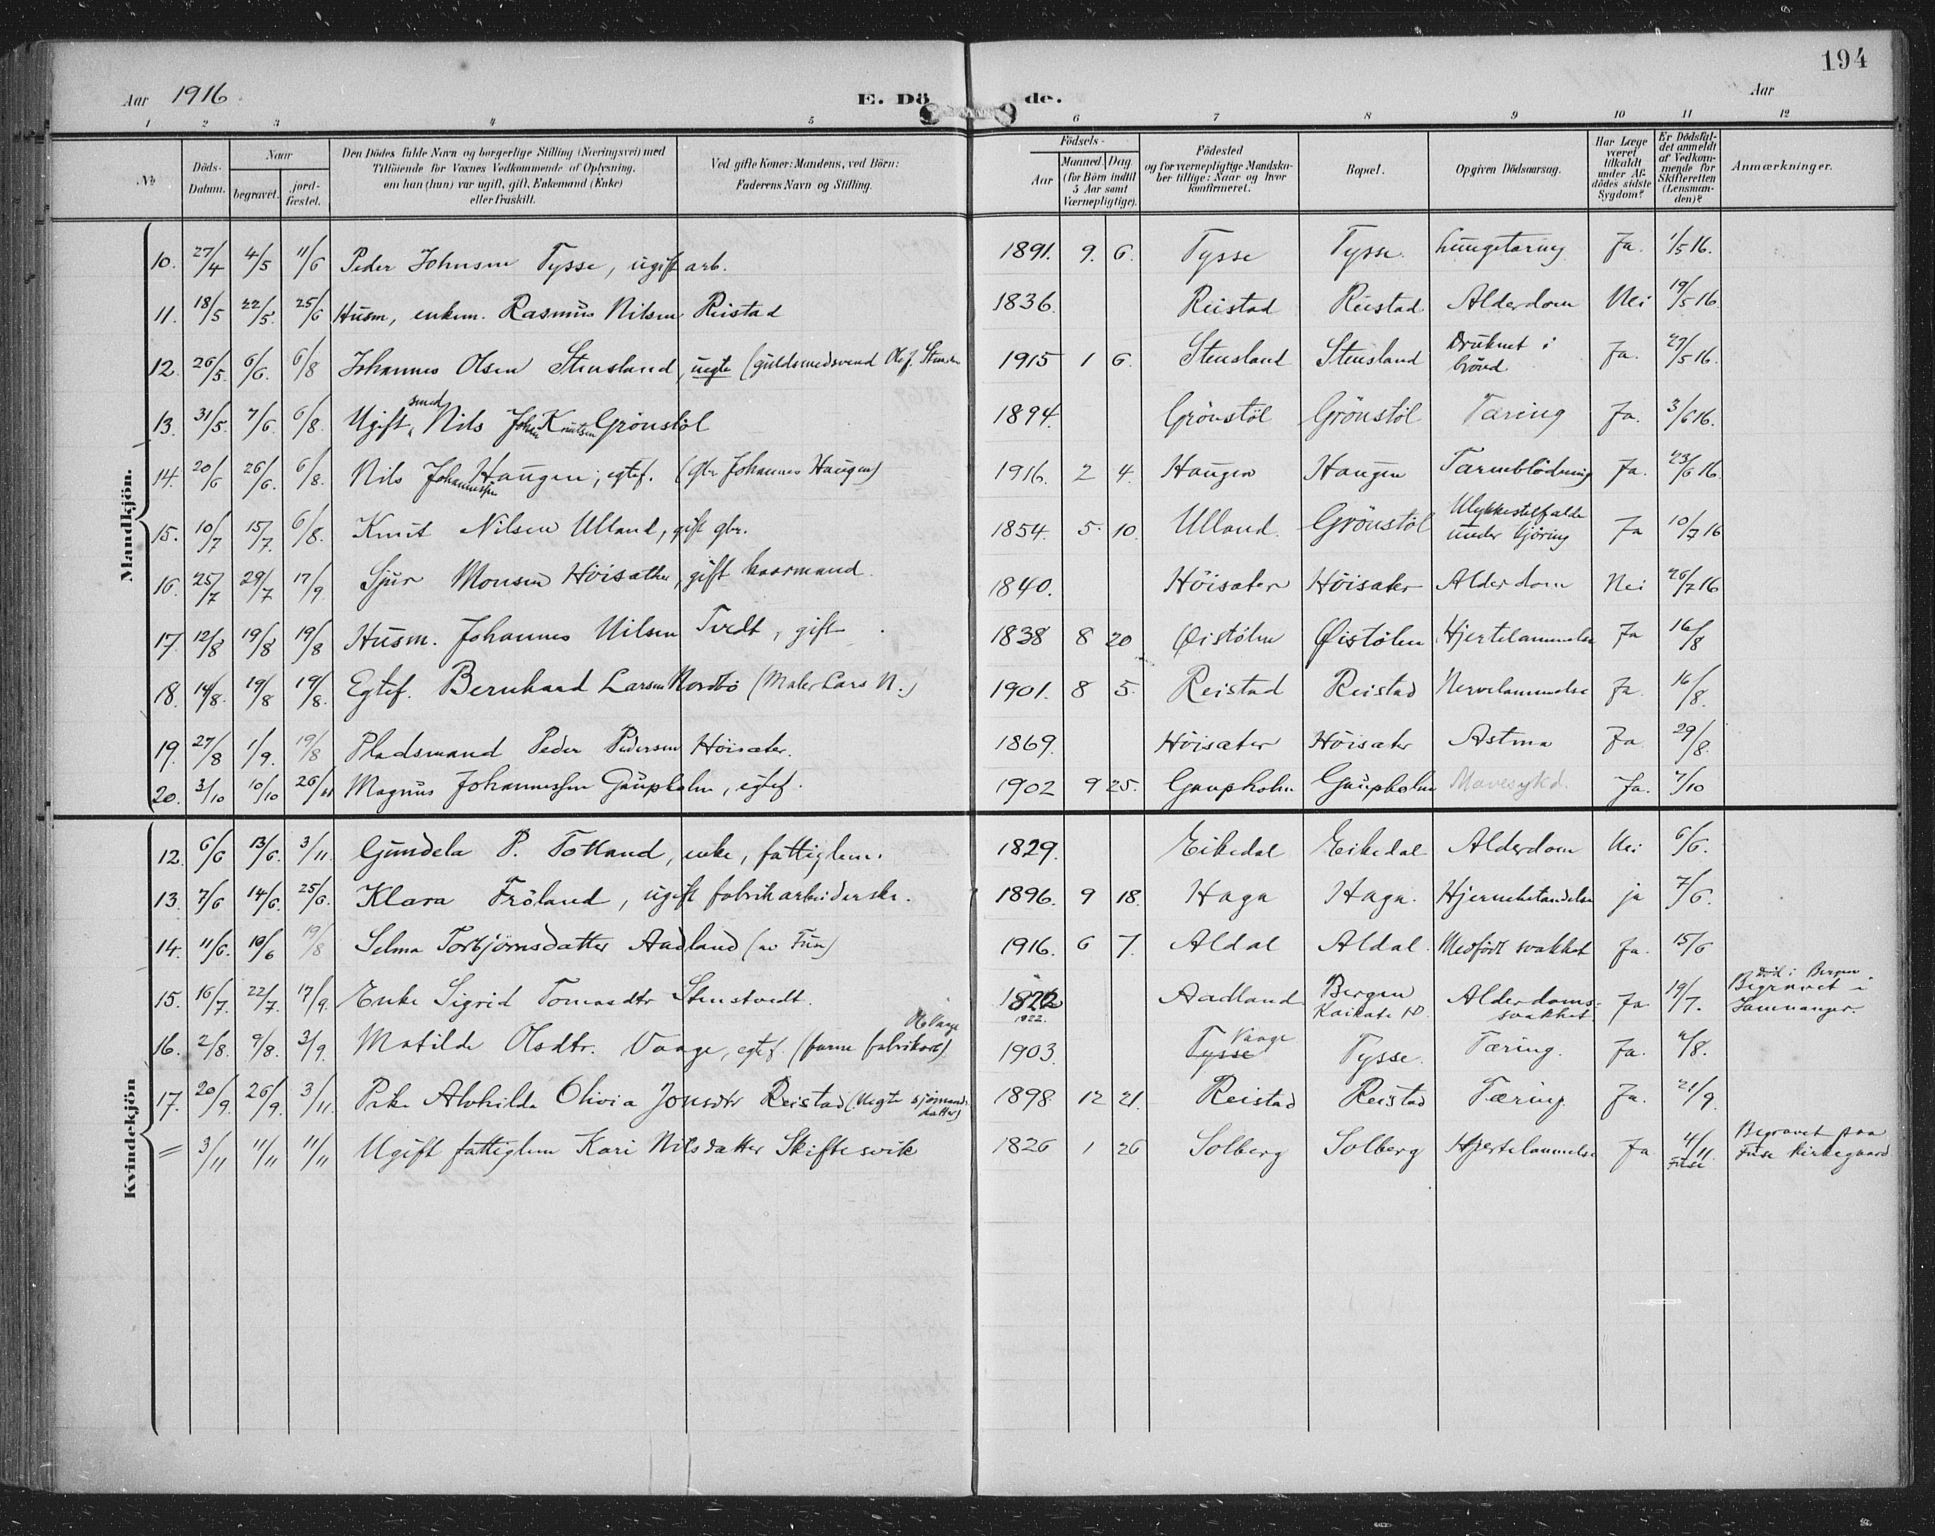 194
Aar 1916. E. Dö de. Aar
1 2 3 4 5 6 7 8 9 10 11 12
No
Döds-Datum.
Naar
begravet.
jord-fæstet.
Den Dödes fulde Navn og borgerlige Stilling (Næringsvei) med
Tilföiende for Voxnes Vedkommende af Oplysning,
om han (hun) var ugift, gift, Enkemand (Enke)
eller fraskilt.
Ved gifte Koner: Mandens, ved Börn:
Faderens Navn og Stilling.
Födsels-
Aar
Maaned. Dag.
(for Börn indtil
5 Aar samt
Værnepligtige).
Födested
og for værnepligtige Mandska-
ber tillige: Naar og hvor
konfirmeret.
Bopæl.
Opgiven Dödsaarsag.
Har Læge
været
tilkaldt
under Af-
dödes sidste
Sygdom?
Er Dödsfal-
det anmeldt
af Vedkom-
mende for
Skifteretten
(Lensman-
den)?
Anmærkninger.
Mandkjön.
10. 27/4 4/5 11/6 Peder Johnsen Tysse, ugift arb. 1891. 9. 6. Tysse Tysse. Lungetæring Ja. 1/5 16.
11. 18/5 22/5. 25/6 Husm, enkem. Rasmus Nilsen Reistad 1836. Reistad Reistad Alderdom Nei 19/5 16
12. 26/5. 6/6. 6/8 Johannes Olsen Stensland, uegte (guldsmedsvend Ole J. 1915 1 6. Stensland Stensland Druknet i brönd Ja. 27/5 16.
13. 31/5. 7/6. 6/8. Ugift smed Nils Johan Knutsen Grönstöl 1894. Grönstöl Grönstöl Tæring Ja. 3/6 16.
14. 20/6 26/6. 6/8. Nils Johannessen Haugen; egtef. (gbr Johannes Haugen) 1916. 2 4. Haugen Haugen Tarmblödning Ja. 23/6 16.
15. 10/7 15/7. 6/8. Knut Nilsen Ulland, gift gbr. 1854. 5. 10. Ulland. Grönstöl Ulykkestilfælde under kjöring Ja 10/7 16
16. 25/7 29/7 17/9 Sjur Monsen Höisæther, gift kaarmand. 1840. Höisæter Höisæter Alderdom Nei 26/7 16
17. 12/8 19/8 19/8 Husm. Johannes Nilsen Tvedt, gift 1838 8 20 Øistölen Øistölen Hjertelammelse Ja 16/8
18. 14/8. 19/8 19/8. Egtef. Bernhard Larsen Nordbö (Maler Lars N.) 1901. 8 5. Reistad Reistad Nervelammelse Ja. 16/8.
19. 27/8 1/9. 19/8 Pladsmand Peder Pedersen Höisæter. 1869. Höisæter Höisæter Astma Ja. 29/8.
20. 3/10 10/10 26/11 Magnus Johannessen Gaupholm, egtef. 1902 9 25. Gaupholm Gaupholm Mavesykd. Ja. 7/10
Kvindekjön
12. 6/6 13/6. 3/11. Gundela P. Totland, enke, fattiglem. 1829. Eikedal Eikedal Alderdom Nei 6/6.
13. 7/6 14/6. 25/6. Klara Fröland, ugift fabrikarbeiderske. 1896. 9 18. Haga Haga. Hjernebetændelse ja 7/6.
14. 11/6. 16/6 19/8 Selma Torbjörnsdatter Aadland (av Fun) 1916. 6 7. Aldal Aldal. Medfödt svakhet Ja. 15/6
15. 16/7. 22/7. 17/9. Enke Sigrid Tomasdtr Stenstvedt. 1822 1822. Aadland Bergen Alderdoms-svakhet. Ja 19/7. död i Bergen Begravet i Samnanger.
16. 2/8. 9/8. 3/9. Matilde Olsdtr. Vaage, egtef. (form fabrikarb) Ole Vaage 1903. Tysse Vaage Tysse. Tæring. Ja. 4/8.
17. 20/9. 26/9. 3/11. Pike Alvhilda Olivia Jonsdtr Reistad (uegte sjömands datter) 1898. 12 21. Reistad Reistad Tæring. Ja. 21/9.
= 3/11 11/11 11/11 Ugift fattiglem Kari Nilsdatter Skiftesvik 1826 1 26 Solberg Solberg Hjertelammelse Ja 4/11. Fuse Begravet paa Fuse kirkegaard